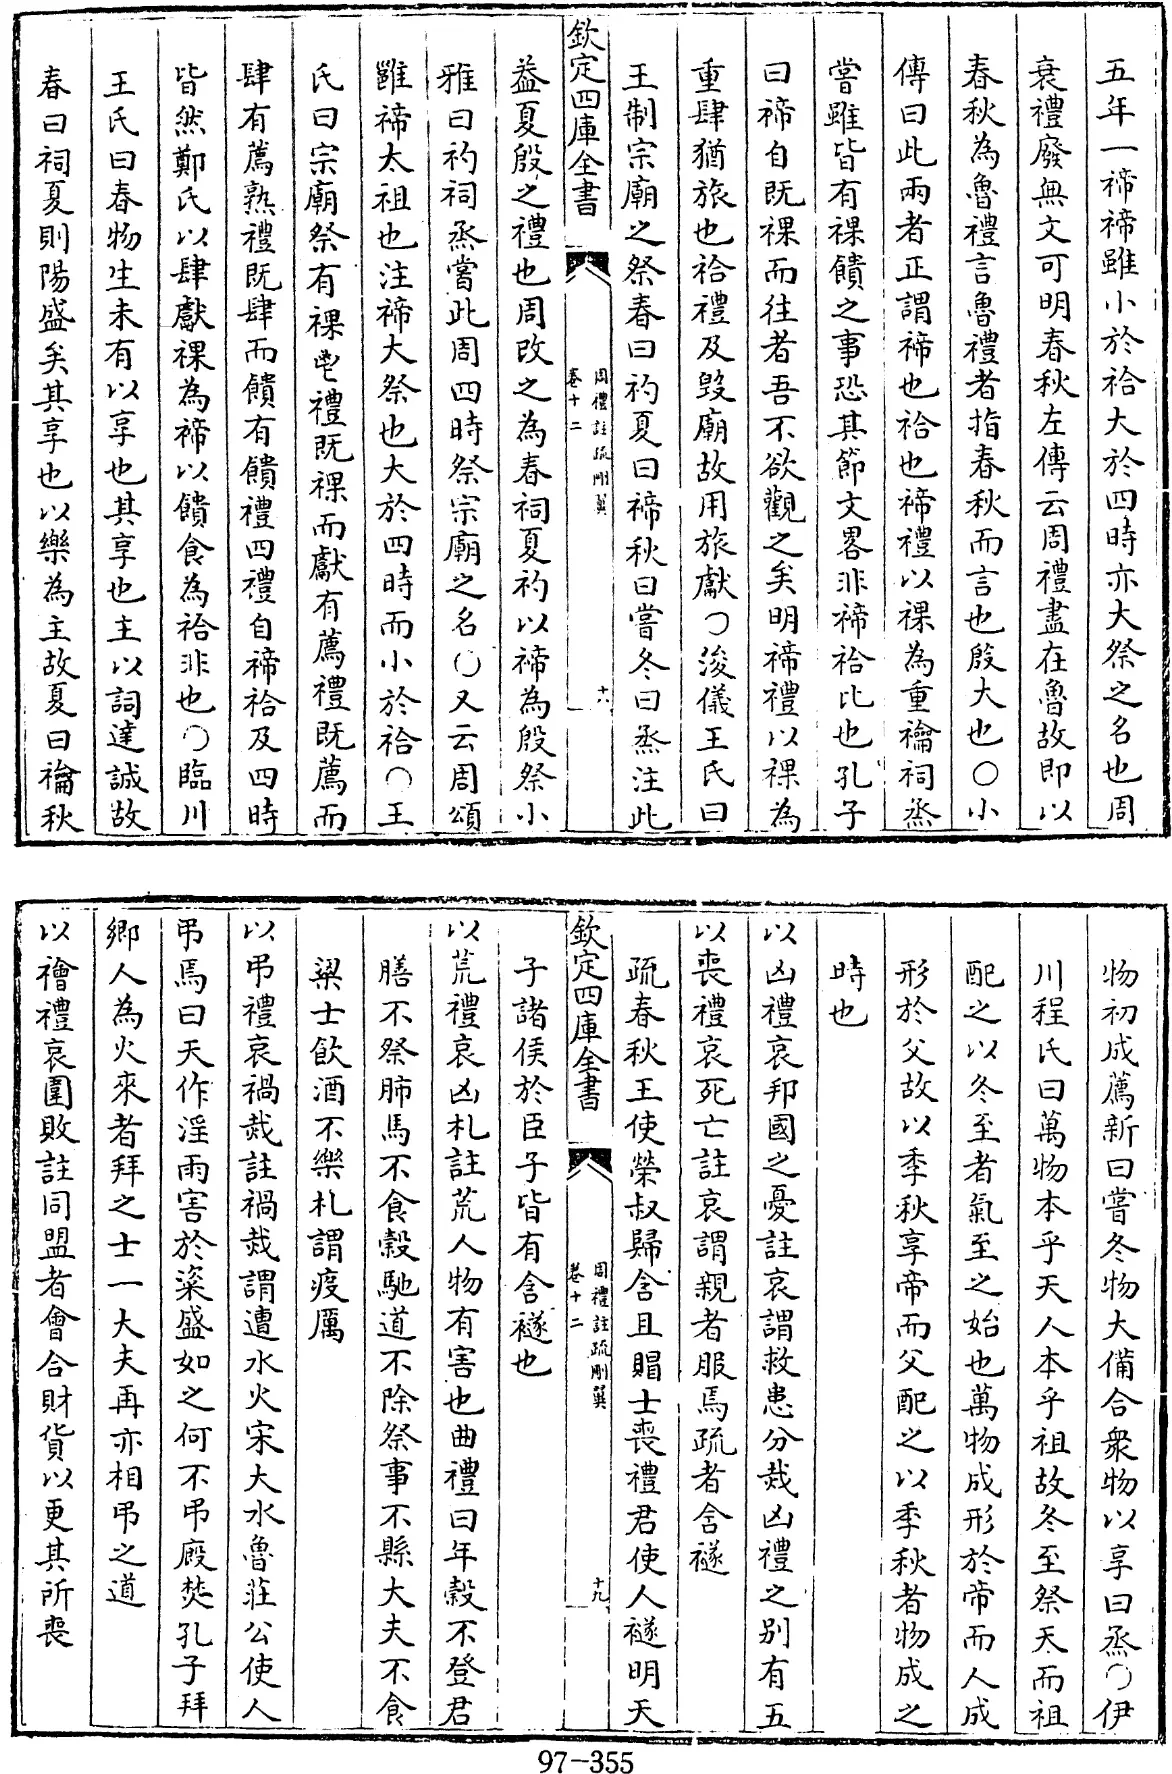 五年一禘禘雖小於祫大於四時亦大祭之名也周
衰禮廢無文可明春秋左傳云周禮盡在魯故即以
春秋為魯禮言魯禮者指春秋而言也殷大也〇小
傳曰此兩者正謂禘也祫也禘禮以祼為重禴祠烝
嘗雖皆有祼饋之事恐其節文畧非禘祫比也孔子
曰禘自既祼而往者吾不欲觀之矣明禘禮以祼為
重肆猶旅也祫禮及毀廟故用旅獻〇浚儀王氏曰
王制宗廟之祭春曰礿夏曰禘秋曰嘗冬曰烝注此
欽定四庫全書
周禮註疏刪翼
卷十二
十八
葢夏殷之禮也周改之為春祠夏礿以禘為殷祭小
雅曰礿祠烝嘗此周四時祭宗廟之名〇又云周頌
雝禘太祖也注禘大祭也大於四時而小於祫〇王
氏曰宗廟祭有祼鬯禮既祼而獻有薦禮既薦而
肆有薦熟禮既肆而饋有饋禮四禮自禘祫及四時
皆然鄭氏以肆獻祼為禘以饋食為祫非也〇臨川
王氏曰春物生未有以享也其享也主以詞達誠故
春曰祠夏則陽盛矣其享也以樂為主故夏曰禴秋
物初成薦新曰嘗冬物大備合衆物以享曰烝〇伊
川程氏曰萬物本乎天人本乎祖故冬至祭天而祖
配之以冬至者氣至之始也萬物成形於帝而人成
形於父故以季秋享帝而父配之以季秋者物成之
時也
以凶禮哀邦國之憂註哀謂救患分烖凶禮之别有五
以喪禮哀死亡註哀謂親者服焉疏者含襚
疏春秋王使榮叔歸含且賵士喪禮君使人襚明天
欽定四庫全書
周禮註疏刪翼
卷十二
十九
子諸侯於臣子皆有含襚也
以荒禮哀凶札註荒人物有害也曲禮曰年穀不登君
膳不祭肺馬不食穀馳道不除祭事不縣大夫不食
粱士飲酒不樂札謂疫厲
以弔禮哀禍烖註禍烖謂遭水火宋大水魯莊公使人
弔焉曰天作淫雨害於粢盛如之何不弔廄焚孔子拜
鄉人為火來者拜之士一大夫再亦相弔之道
以禬禮哀圍敗註同盟者會合財貨以更其所喪
97-355